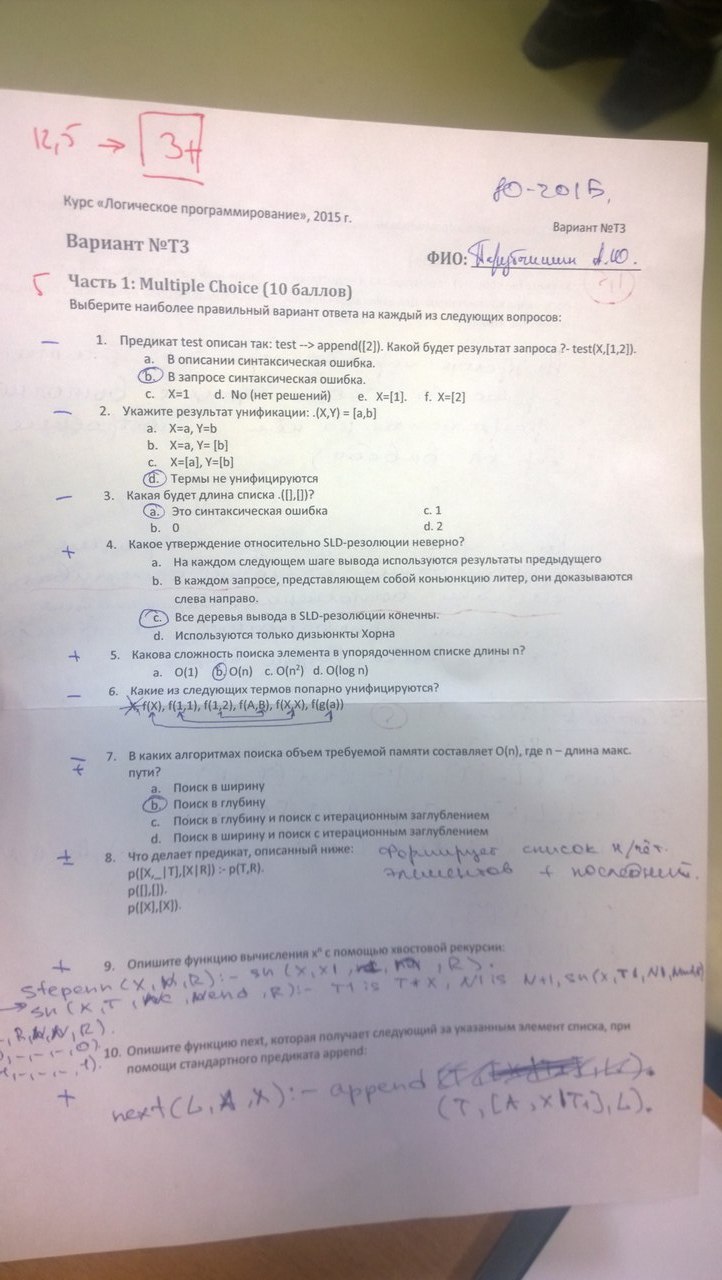 12,5 → 3+
80-201Б,
Курс «Логическое программирование», 2015 г.
Вариант №Т3
Вариант №Т3
ФИО: А.Ю.
5
Часть 1: Multiple Choice (10 баллов)
Выберите наиболее правильный вариант ответа на каждый из следующих вопросов:
– 1. Предикат test описан так: test --> append([2]). Какой будет результат запроса ?- test(X,[1,2]).
a. В описании синтаксическая ошибка.
b. В запросе синтаксическая ошибка.
c. X=1 d. No (нет решений) e. X=[1]. f. X=[2]
– 2. Укажите результат унификации: .(X,Y) = [a,b]
a. X=a, Y=b
b. X=a, Y= [b]
c. X=[a], Y=[b]
d. Термы не унифицируются
– 3. Какая будет длина списка .([],[])?
a. Это синтаксическая ошибка c. 1
b. 0 d. 2
+ 4. Какое утверждение относительно SLD-резолюции неверно?
a. На каждом следующем шаге вывода используются результаты предыдущего
b. В каждом запросе, представляющем собой коньюнкцию литер, они доказываются
слева направо.
c. Все деревья вывода в SLD-резолюции конечны.
d. Используются только дизъюнкты Хорна
+ 5. Какова сложность поиска элемента в упорядоченном списке длины n?
a. O(1) b. O(n) c. O(n²) d. O(log n)
– 6. Какие из следующих термов попарно унифицируются?
X, f(X), f(1,1), f(1,2), f(A,B), f(X,X), f(g(a))
7. В каких алгоритмах поиска объем требуемой памяти составляет O(n), где n – длина макс.
пути?
a. Поиск в ширину
b. Поиск в глубину
c. Поиск в глубину и поиск с итерационным заглублением
d. Поиск в ширину и поиск с итерационным заглублением
± 8. Что делает предикат, описанный ниже: Формирует список н/чёт.
p([X,_|T],[X|R]) :- p(T,R). элементов + последний.
p([],[]).
p([X],[X]).
+ 9. Опишите функцию вычисления xⁿ с помощью хвостовой рекурсии:
stepenn(X,N,R):- sn(X,X1, , R).
→ sn(X,T, Nend, R):- T1 is T*X, N1 is N+1, sn(X,T1,N1,Nend,R)
10. Опишите функцию next, которая получает следующий за указанным элемент списка, при
помощи стандартного предиката append:
+ next(L,A,X):- append
(T,[A,X|T1],L).